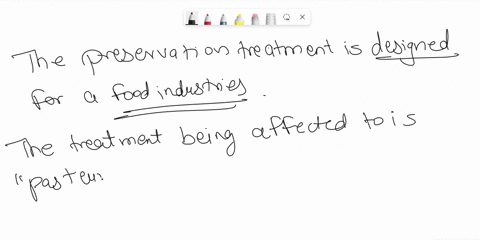 The preservation treatment is designed
for a food industries.
The treatment being affected to is
"pasteu